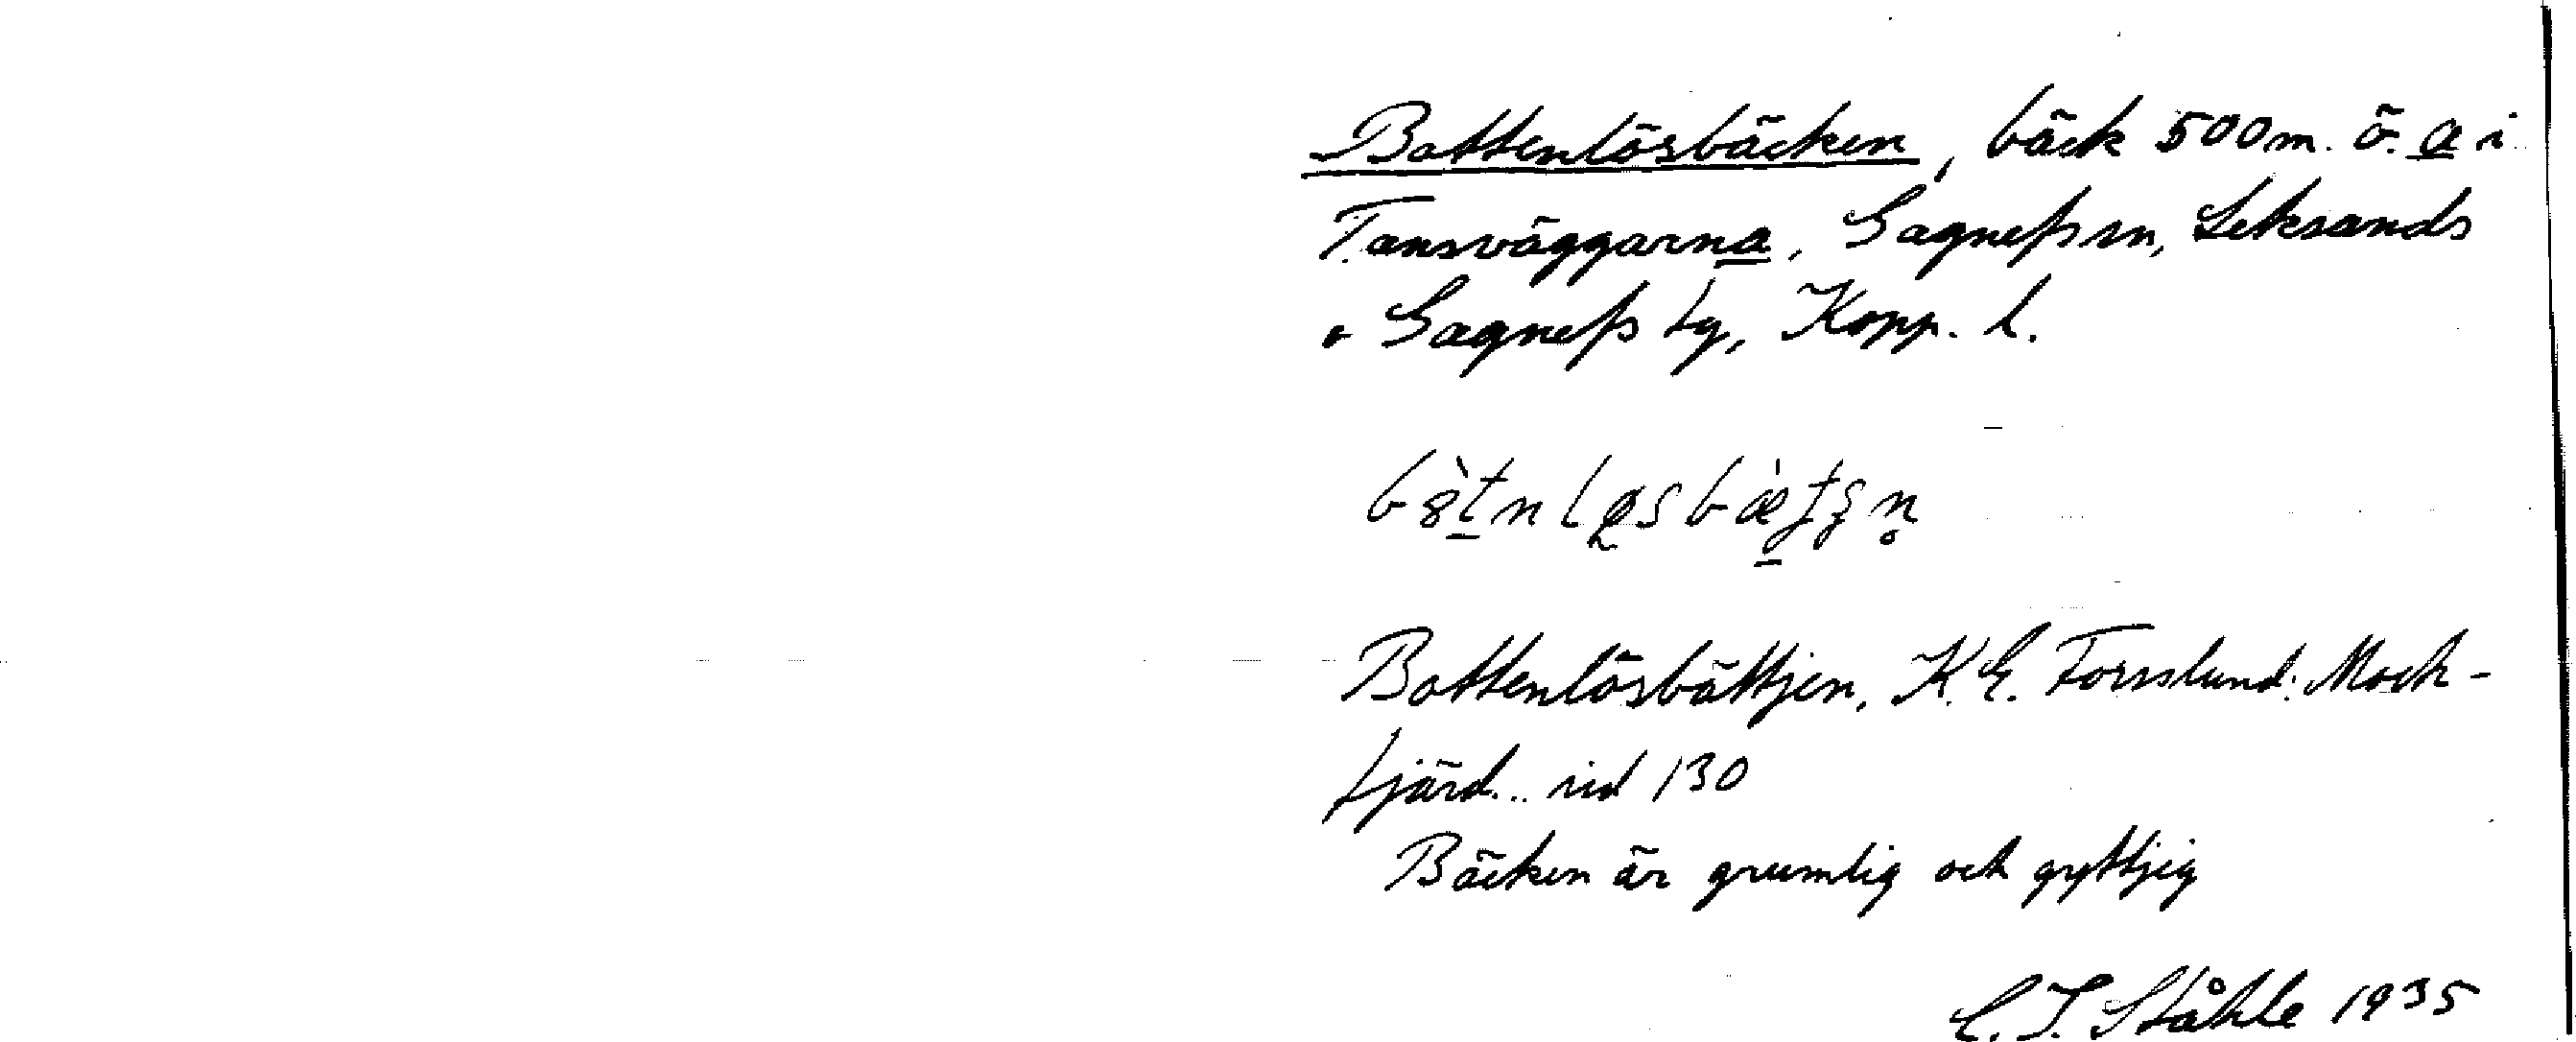 Bottenlösbäcken, bäck 500 m. ö. a i
Tansväggarna, Gagnefs sn, Leksands
o Gagnefs tg, Kopp. l.
Bottenlösbättjen, K. E. Forsslund: Mock-
fjärd.. sid 130
Bäcken är grumlig och gyttjig
C. I. Ståhle 1935